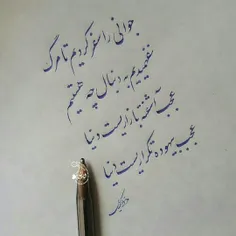 جوانی را سفر کردیم تا مرگ
نفهمیدیم به دنبال چه هستیم
عجب آشفته بازاریست دنیا
عجب بیهوده تکراریست دنیا